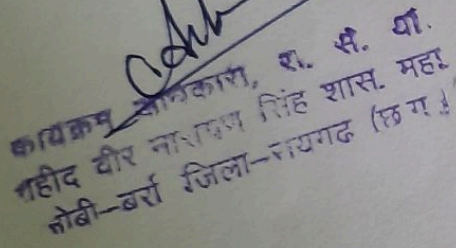 कार्यक्रम अधिकारी, रा. से. यो.
शहीद वीर नारायण सिंह शास. महा.
जोबी-बर्रा जिला-रायगढ (छ ग.)